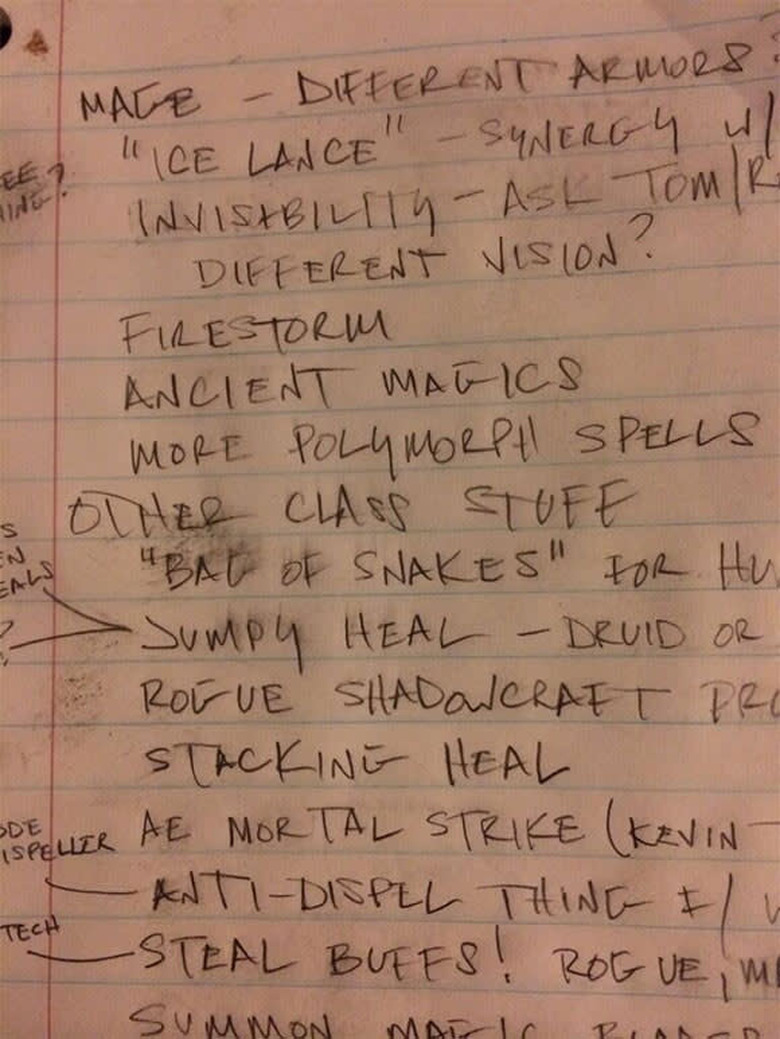 MAGE - DIFFERENT ARMORS?
"ICE LANCE" - SYNERGY W/
INVISIBILITY - ASK TOM/R
DIFFERENT VISION?
FIRESTORM
ANCIENT MAGICS
MORE POLYMORPH SPELLS
OTHER CLASS STUFF
"BAG OF SNAKES" FOR HU
JUMPY HEAL - DRUID OR
ROGUE SHADOWCRAFT PRO
STACKING HEAL
AE MORTAL STRIKE (KEVIN -
ODE
ISPELLER
ANTI-DISPEL THING F/
TECH
STEAL BUFFS! ROGUE, M
SUMMON MAGIC